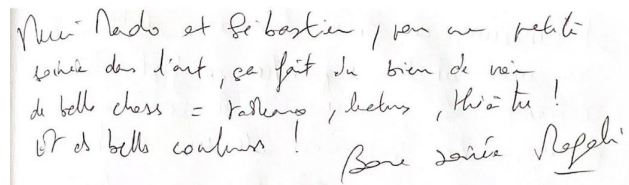 Merci Mado et Sébastien, pour une petite
soirée dans l'art, ça fait du bien de voir
de belles choses = tableaux, lectures, théâtre !
Et des belles couleurs !
Bonne soirée Magali